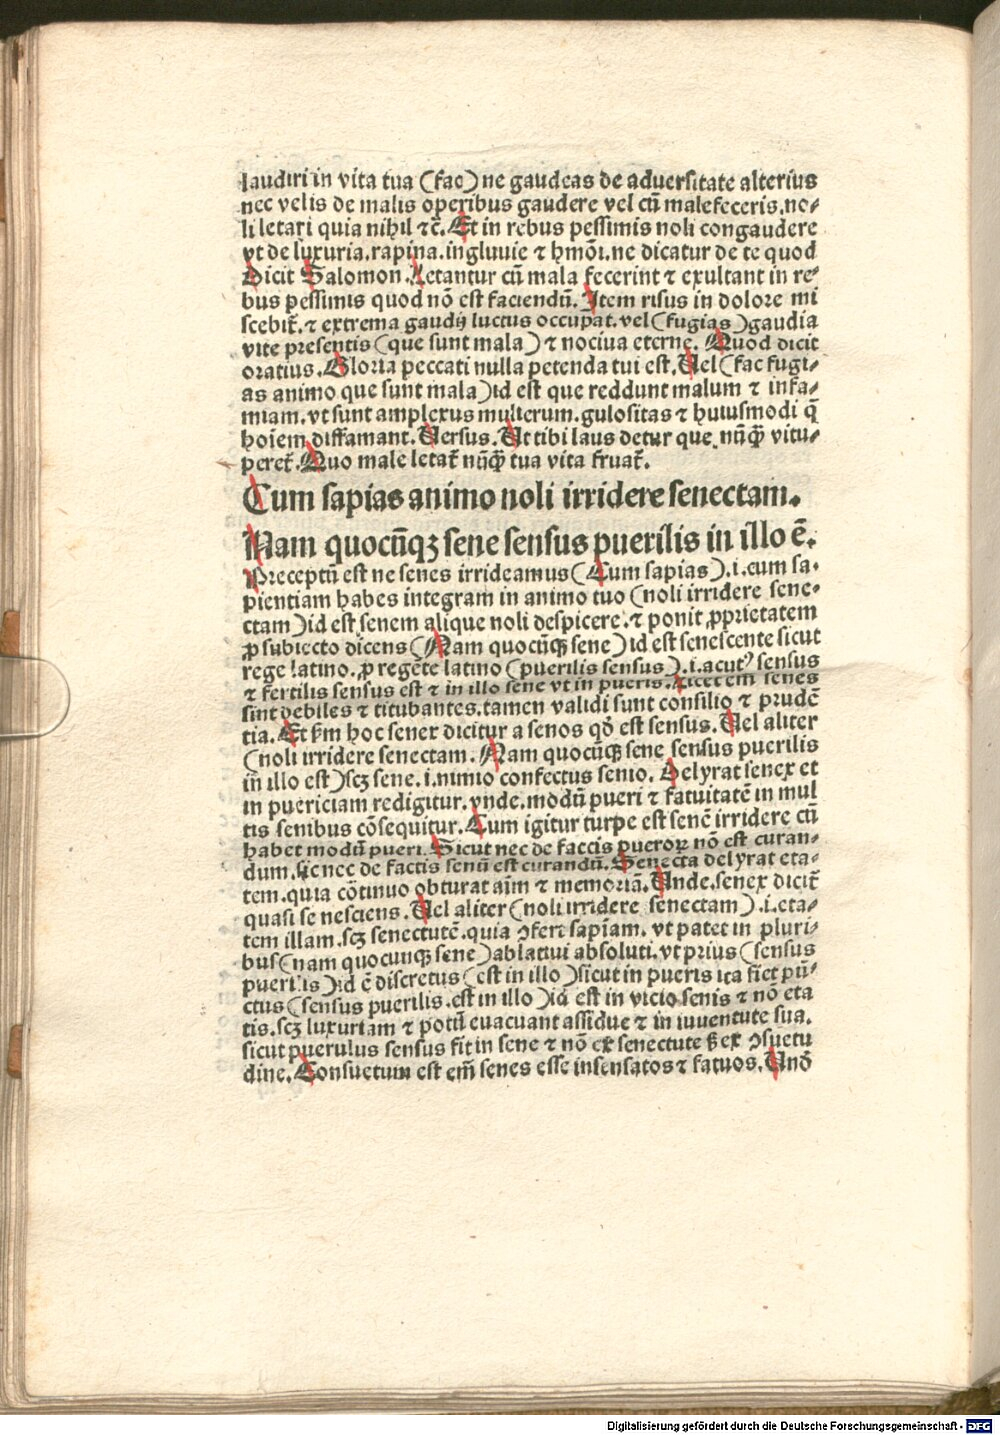 laudiri in vita tua (fac) ne gaudeas de aduersitate alterius
nec velis de malis operibus gaudere vel cū malefeceris.no⸗
li letari quia nihil ⁊c̄. Et in rebus pessimis noli congaudere
vt de luxuria.rapina.ingluuie ⁊ hmōi.ne dicatur de te quod
Dicit Salomon. Letantur cū mala fecerint ⁊ exultant in re⸗
bus pessimis quod nō est faciendū. Item risus in dolore mi
scebit̄.⁊ extrema gaudij luctus occupat.vel (fugias) gaudia
vite presentis (que sunt mala) ⁊ nociua eterne. Quod dicit
oratius. Gloria peccati nulla petenda tui est. Uel (fac fugi⸗
as animo que sunt mala) id est que reddunt malum ⁊ infa⸗
miam.vt sunt amplexus mulierum.gulositas ⁊ huiusmodi q̄
hoīem diffamant. Uersus. Ut tibi laus detur que nūq̄ vitu⸗
peret̄. Quo male letat̄ nūq̄ tua vita fruat̄.
Cum sapias animo noli irridere senectam.
Nam quocūqꝫ sene sensus puerilis in illo ē.
Preceptū est ne senes irrideamus (Cum sapias).i.cum sa⸗
pientiam habes integram in animo tuo (noli irridere sene⸗
ctam) id est senem alique noli despicere.⁊ ponit ꝓprietatem
ꝓ subiecto dicens (Nam quocūqꝫ sene) id est senescente sicut
rege latino.ꝓ regēte latino (puerilis sensus).i.acutꝰ sensus
⁊ fertilis sensus est ⁊ in illo sene vt in pueris. Licet em̄ senes
sint debiles ⁊ titubantes.tamen validi sunt consilio ⁊ prudē
tia. Et s̄m hoc senex dicitur a senos qd̄ est sensus. Uel aliter
(noli irridere senectam. Nam quocūqꝫ sene sensus puerilis
in illo est) scꝫ sene.i.nimio confectus senio. Delyrat senex et
in puericiam redigitur.vnde.modū pueri ⁊ fatuitatē in mul
tis senibus cōsequitur. Cum igitur turpe est senē irridere cū
habet modū pueri. Sicut nec de factis pueroꝝ nō est curan⸗
dum.sic nec de factis senū est curandū. Senecta delyrat eta⸗
tem.quia cōtinuo obturat aīm ⁊ memoriā. Unde.senex dicit̄
quasi se nesciens. Uel aliter (noli irridere senectam).i.eta⸗
tem illam.scꝫ senectutē.quia ↄfert sapīam. vt patet in pluri⸗
bus (nam quocunqꝫ sene) ablatiui absoluti.vt prius (sensus
puerilis) id ē discretus (est in illo) sicut in pueris ita fiet pū⸗
ctus (sensus puerilis.est in illo) id est in vicio senis ⁊ nō eta
tis.scꝫ luxuriam ⁊ potū euacuant assidue ⁊ in iuuentute sua.
sicut puerulus sensus fit in sene ⁊ nō ex senectute sꝫ ex ↄsuetu
dine. Consuetum est em̄ senes esse insensatos ⁊ fatuos. Und̄
Digitalisierung gefördert durch die Deutsche Forschungsgemeinschaft - DFG